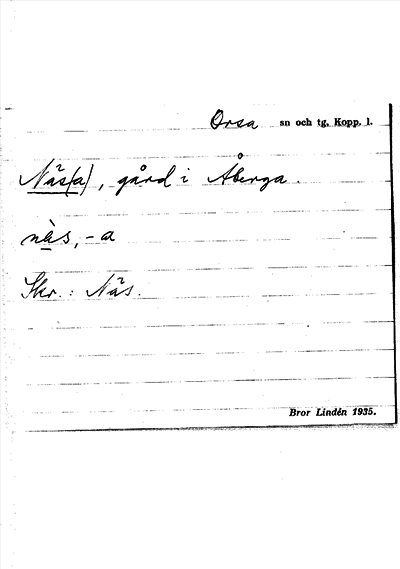 Orsa sn och tg, Kopp. l.
Näs(a), gård i Åberga.
nàs, -a
Skr.: Näs.
Bror Lindén 1935.